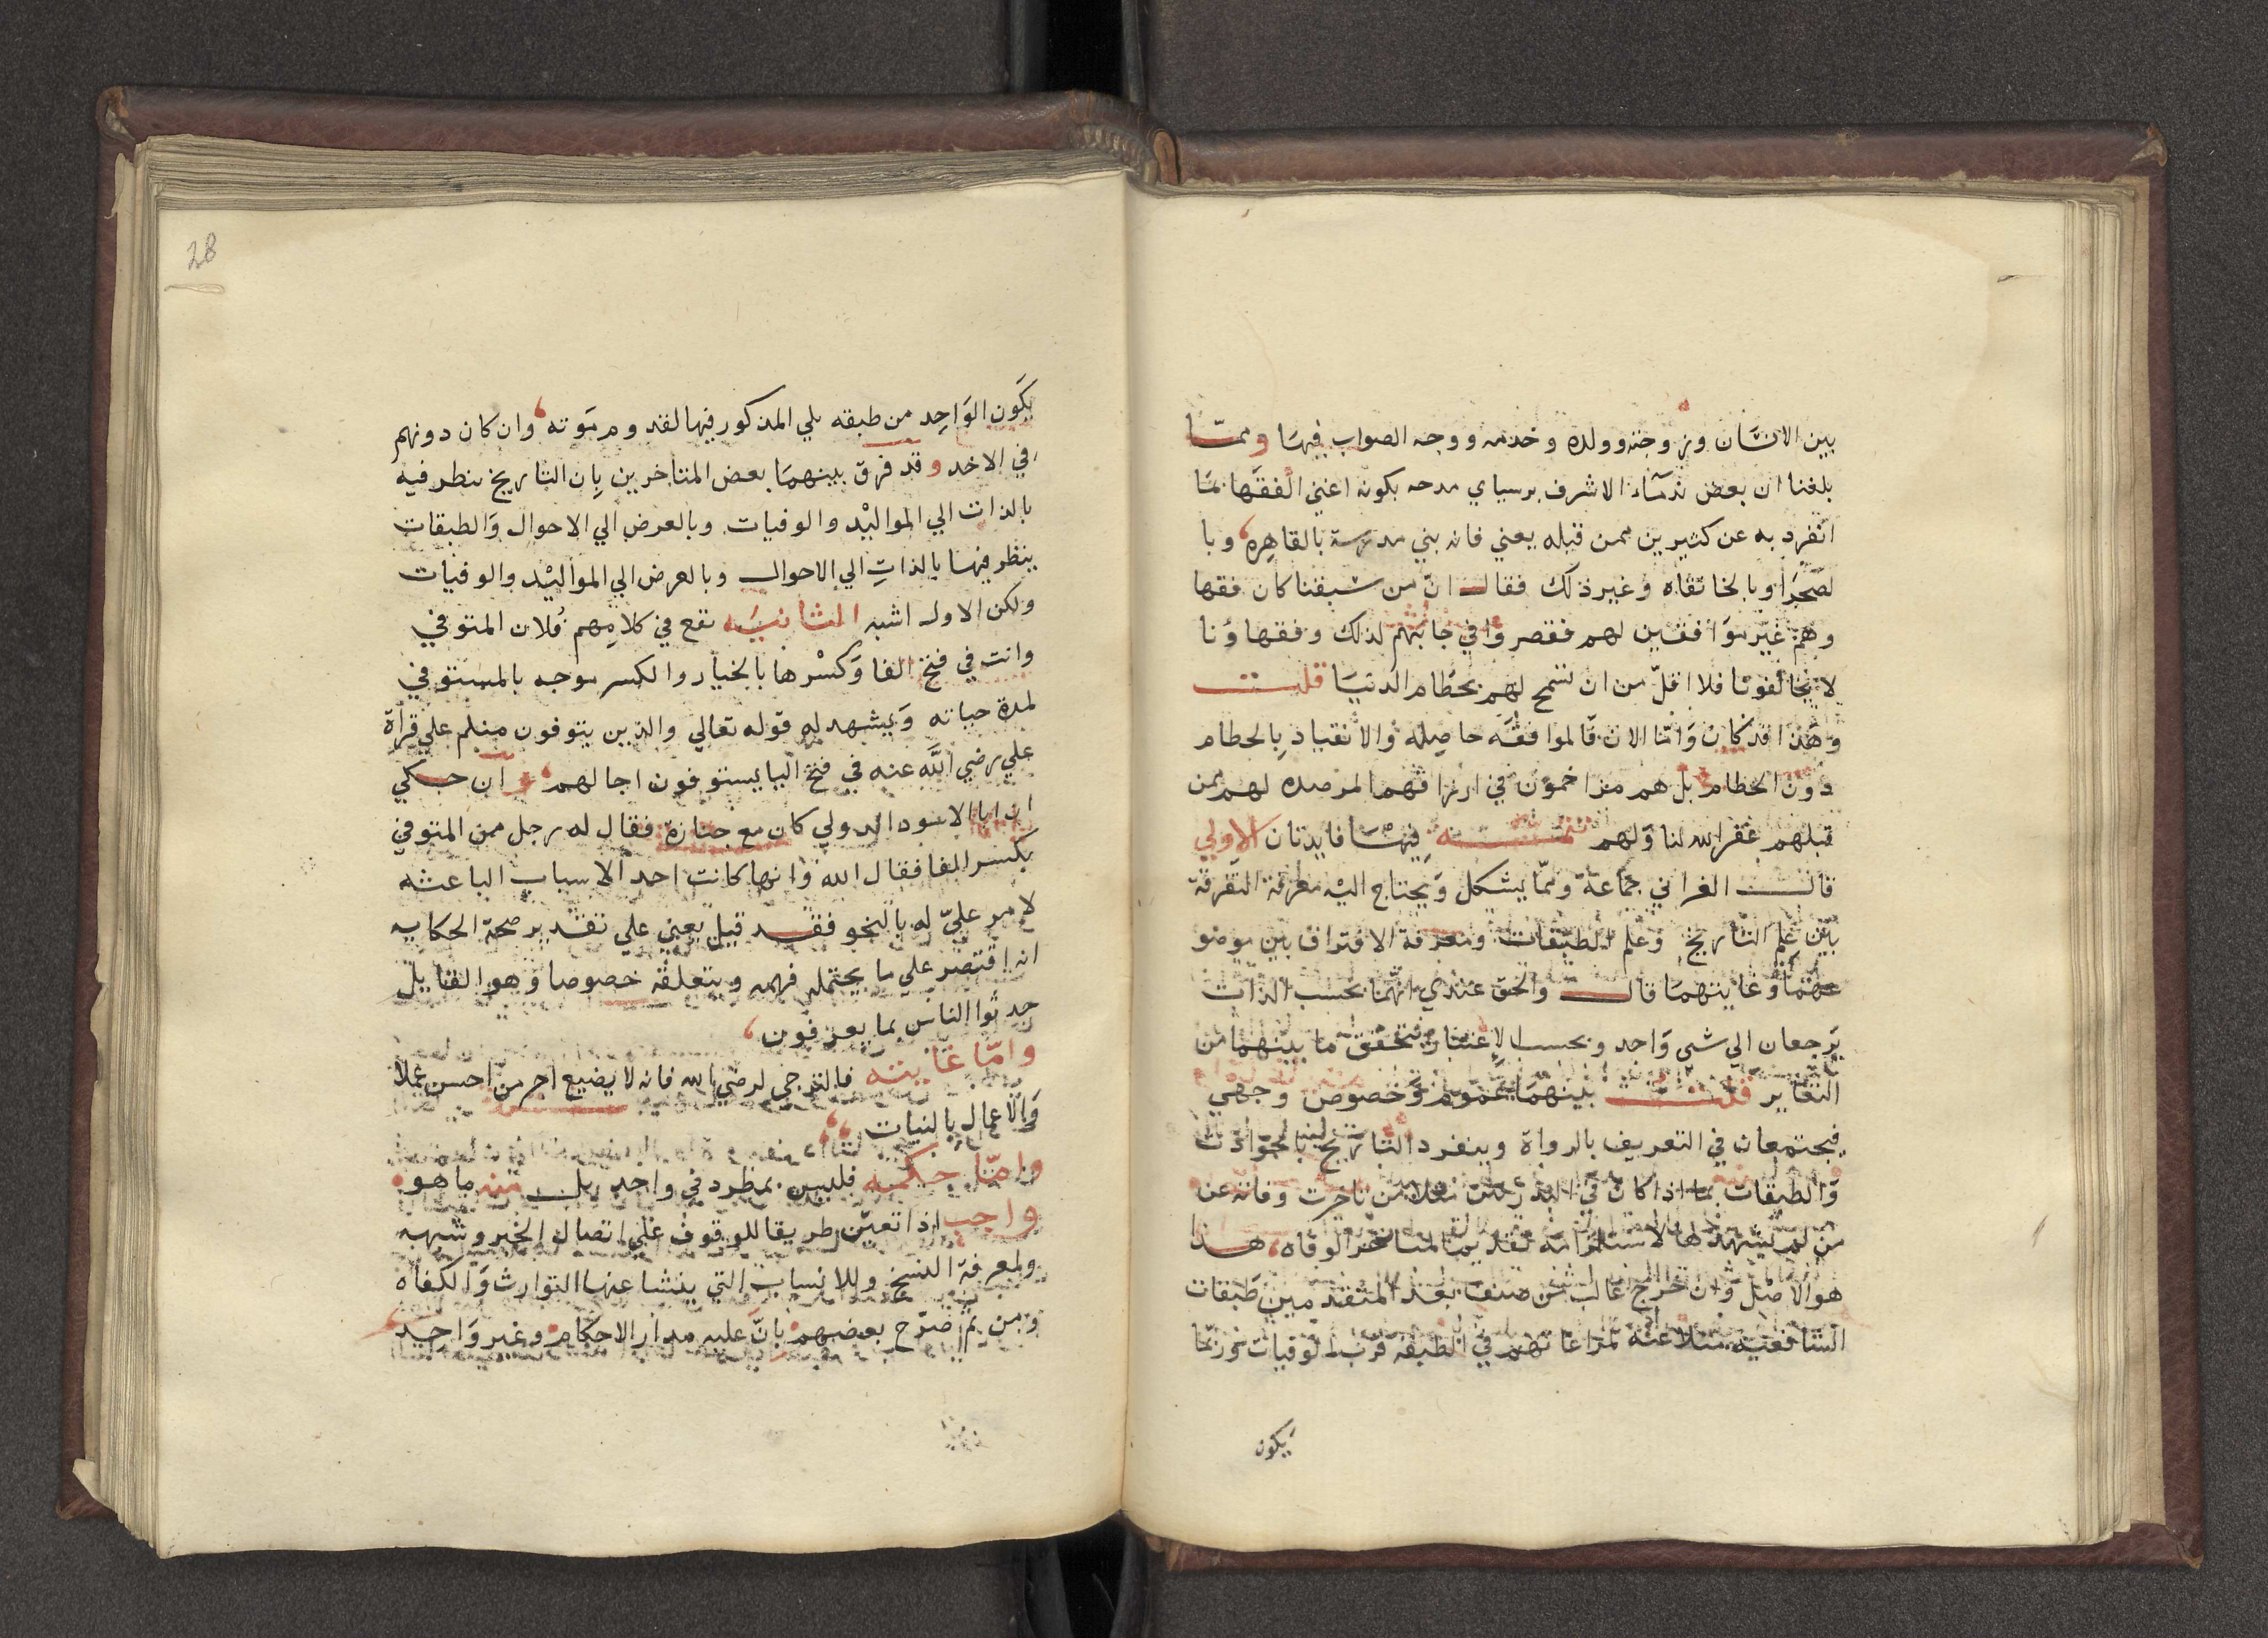 بين الانسان وزوجته وولده وخدمه ووجه الصواب فيها ومما
بلغنا ان بعض ندماء الاشرف برسباي مدحه بكونه اغني الفقها بما
انفرد به عن كثيرين ممن قبله يعني فانه بني مدرسة بالقاهره وبا
لصحرا وبالخانقاه وغير ذلك فقال ان من سبقنا كان فقها
وهم غير موافقين لهم فقصروا في جانبهم لذلك وفقهاونا
لا يخالفونا فلا اقل من ان نسمح لهم بحطام الدنيا قلت
وهذا قد كان واما الان فالموافقه حاصله والانقياد بالحطام
دون الحطام بل هم مزاحمون في ارزاقهم المرصده لهم ممن
قبلهم غفر الله لنا ولهم تتمه فيها فايدتان الاولي
قالت الغراني جماعة ومما يشكل ويحتاج اليه معرفة التفرقة
بين علم التاريخ وعلم الطبقات ومعرفة الافتراق بين موضو
عهما وغايتهما قال والحق عندي انهما بحسب الذات
يرجعان الي شي واحد وبحسب الاعتبار يتحقق ما بينهما من
التغاير قلت بينهما عموم وخصوص وجهي
فيجتمعان في التعريف بالرواة وينفرد التاريخ بالحوادث
والطبقات بما اذا كان في البدريين مثلا من تاخرت وفاته عن
من لم يشهدها لاستلزامه تقديم المتاخر الوفاه هذا
هو الاصل وان خرج غالب من صنف بعد المتقدمين طبقات
الشافعيه مثلا عنه لمراعاتهم في الطبقه قرب الوفيات وربما
يكون
28
يكون الواحد من طبقه يلي المذكور فيها لقدوم موته وان كان دونهم
في الاخد وقد فرق بينهما بعض المتاخرين بان التاريخ ينظر فيه
بالذات الي المواليد والوفيات وبالعرض الي الاحوال والطبقات
ينظر فيها بالذات الي الاحوال وبالعرض الي المواليد والوفيات
ولكن الاول اشبه الثانيه تقع في كلامهم فلان المتوفي
وانت في فتح الفا وكسرها بالخيار والكسر موجه بالمستوفي
لمدة حياته ويشهد له قوله تعالي والذين يتوفون منكم علي قراة
علي رضي الله عنه في فتح اليا يستوفون اجالهم وان حكي
ان ابا الاسود الدولي كان مع جنازة فقال له رجل ممن المتوفي
بكسر الفا فقال الله وانها كانت احد الاسباب الباعثه
لامر علي له بالنحو فقد قيل يعني علي تقدير صحة الحكايه
انه اقتصر علي ما يحتمله فهمه ويتعلقه خصوصا وهو القايل
حدثوا الناس بما يعرفون
واما غايته فالترجي لرضي الله فانه لا يضيع اجر من احسن عملا
والاعمال بالنيات
واما حكمه فليس بمطرد في واحد بل منه ما هو
واجب اذا تعين طريقا للوقوف علي اتصال الخبر وشبهه
ولمعرفة النسخ وللانساب التي ينشا عنها التوارث والكفاه
ومن ثم صرح بعضهم بان عليه مدار الاحكام وغير واحد